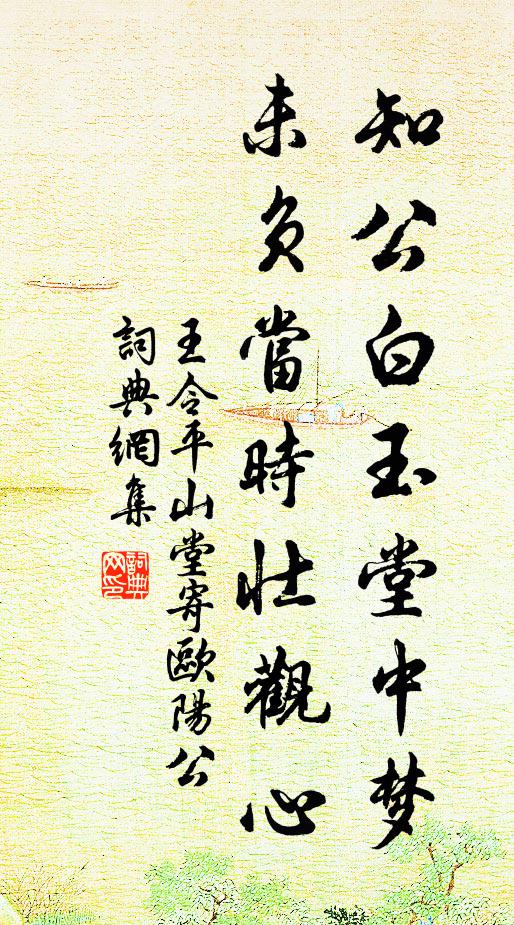 知公白玉堂中梦
未負當時壯觀心
王令平山堂寄歐陽公
詞典網集
詞典网印